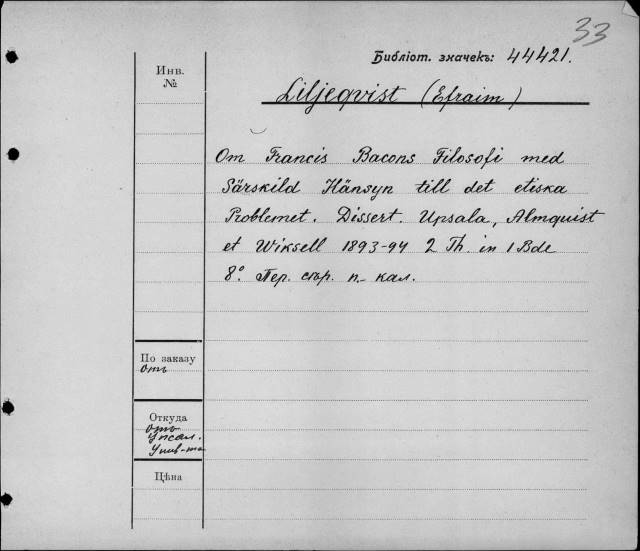 33
Библіот. значекъ: 44421.
Инв.
№
Liljeqvist (Efraim)
Om Francis Bacons Filosofi med
Särskild Hänsyn till det etiska
Problemet. Dissert. Upsala, Almquist
et Wiksell 1893-94 2 Th. in 1 Bde
8° Пер. стр. п.- кал.
По заказу
отъ
Откуда
отъ
Упсал.
Унив-та
Цѣна